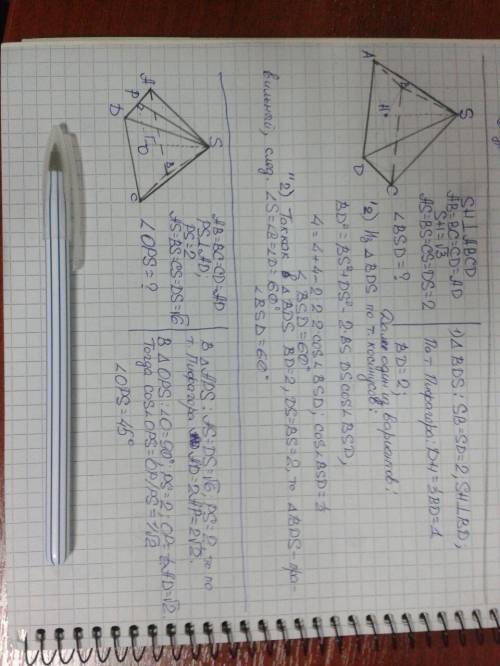 S
A
H
D
C
SH⊥ABCD
AB=BC=CD=AD
SH=√3
AS=BS=CS=DS=2
∠BSD=?
1) ΔBDS: SB=SD=2; SH⊥BD;
По т. Пифагора: DH=½BD=1
BD=2;
Далее один из вариантов:
"2) Из ΔBDS по т. косинусов:
BD²=BS²+DS²-2·BS·DS·cos∠BSD,
4=4+4-2·2·2·cos∠BSD; cos∠BSD=½
∠BSD=60°
"2) Так как в ΔBDS BD=2, DS=BS=2, то ΔBDS-пра-
вильный, след. ∠S=∠B=∠D=60°
∠BSD=60°
S
A
P
D
O
B
C
AB=BC=CD=AD
PS⊥AD;
PS=2
AS=BS=CS=DS=√6
∠OPS=?
В ΔADS: AS=DS=√6, PS=2, то по
т. Пифагора AD=2AP=2√2.
В ΔOPS: ∠O=90°, PS=2; OP=½AD=√2
Тогда cos∠OPS=OP/PS=1/√2
∠OPS=45°